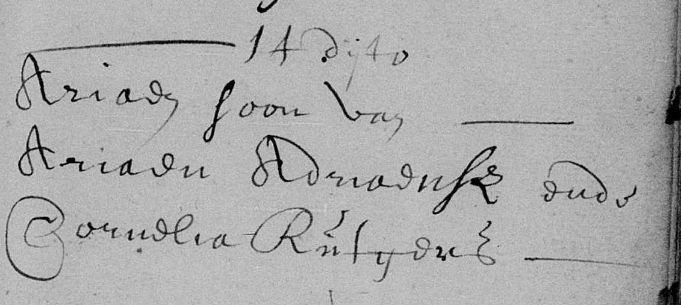 14 dijto
Ariaen soon van
Ariaen Adriaensz ende
Cornelia Rutgers